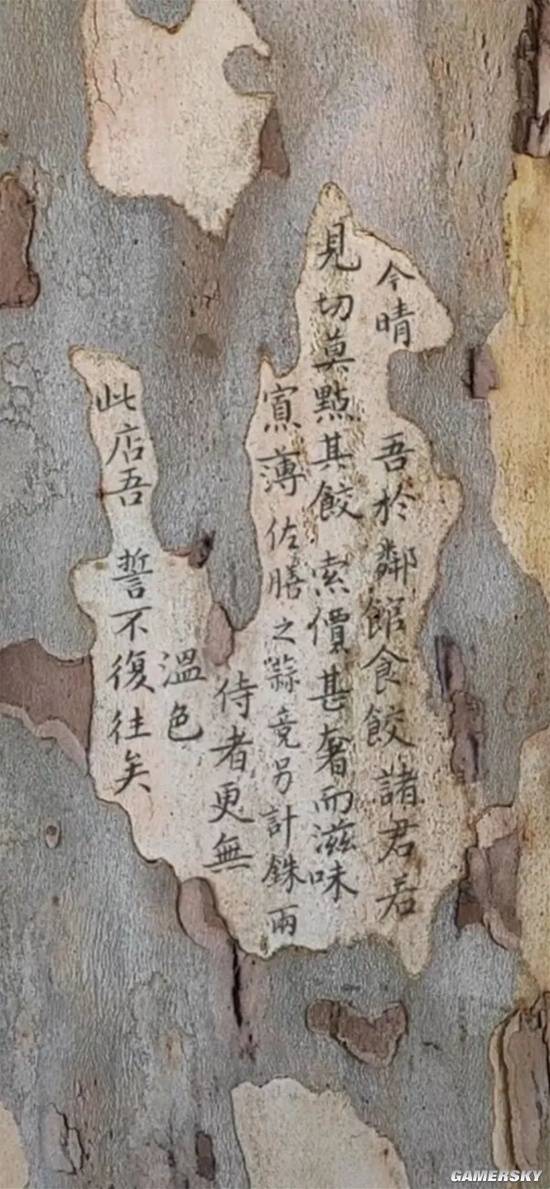 今晴
吾於鄰館食餃諸君若
見切莫點其餃索價甚奢而滋味
寡薄佐膳之蒜竟另計銖兩
侍者更無
溫色
此店吾誓不復往矣
GAMERSKY